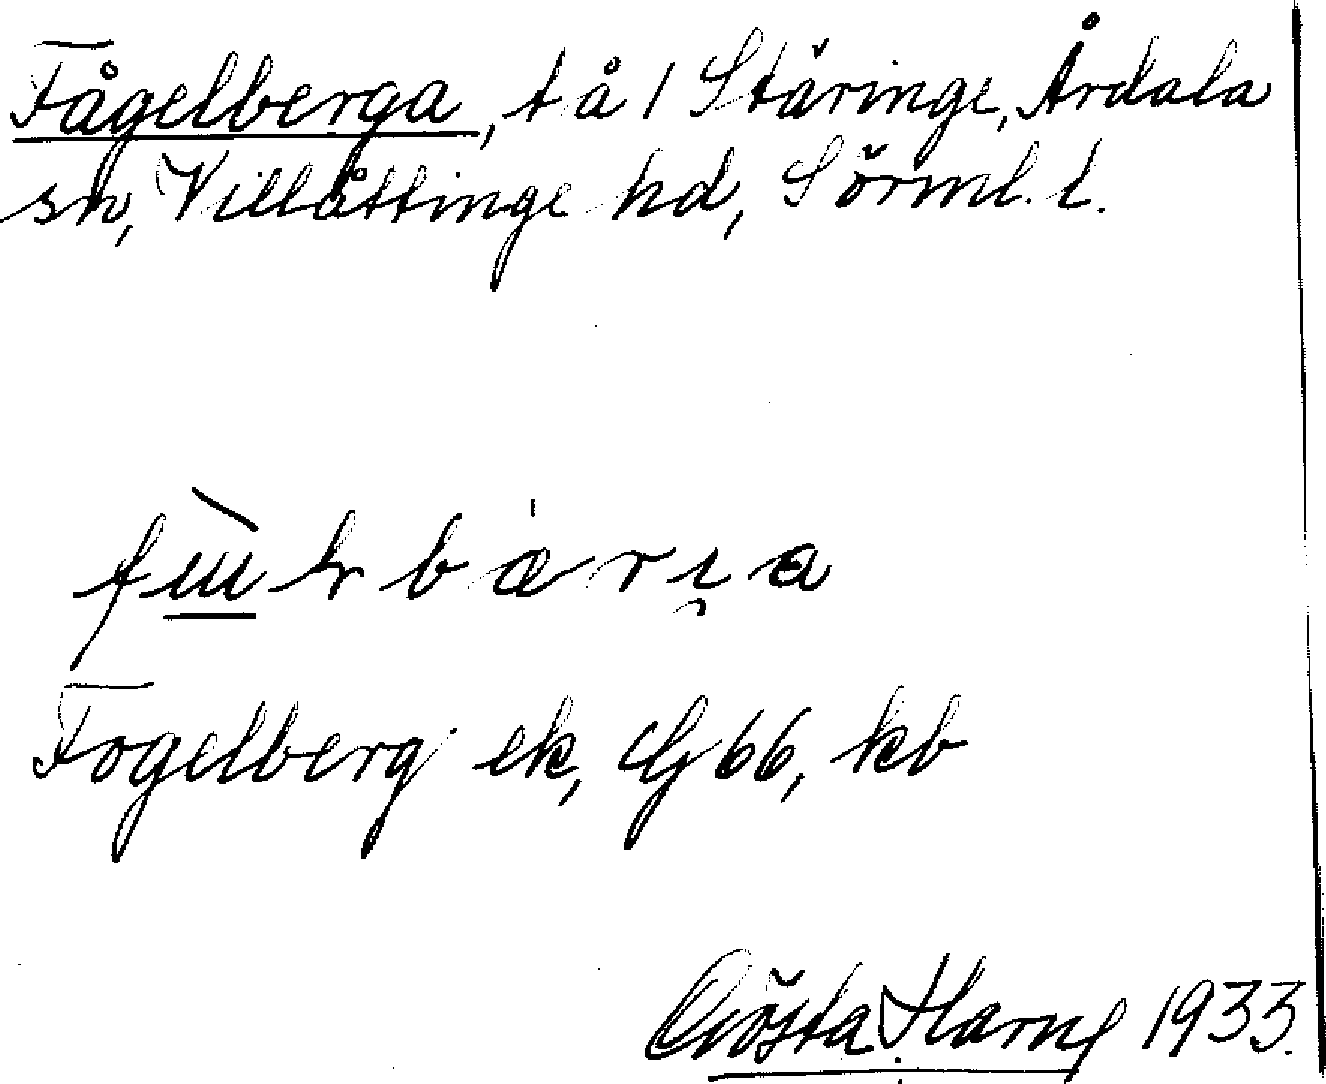 Fågelberga, t å 1 Stäringe, Årdala
sn, Villåttinge hd, Sörml. l.
Fogelberg ek, G 66, kb
Gösta Harng 1933.